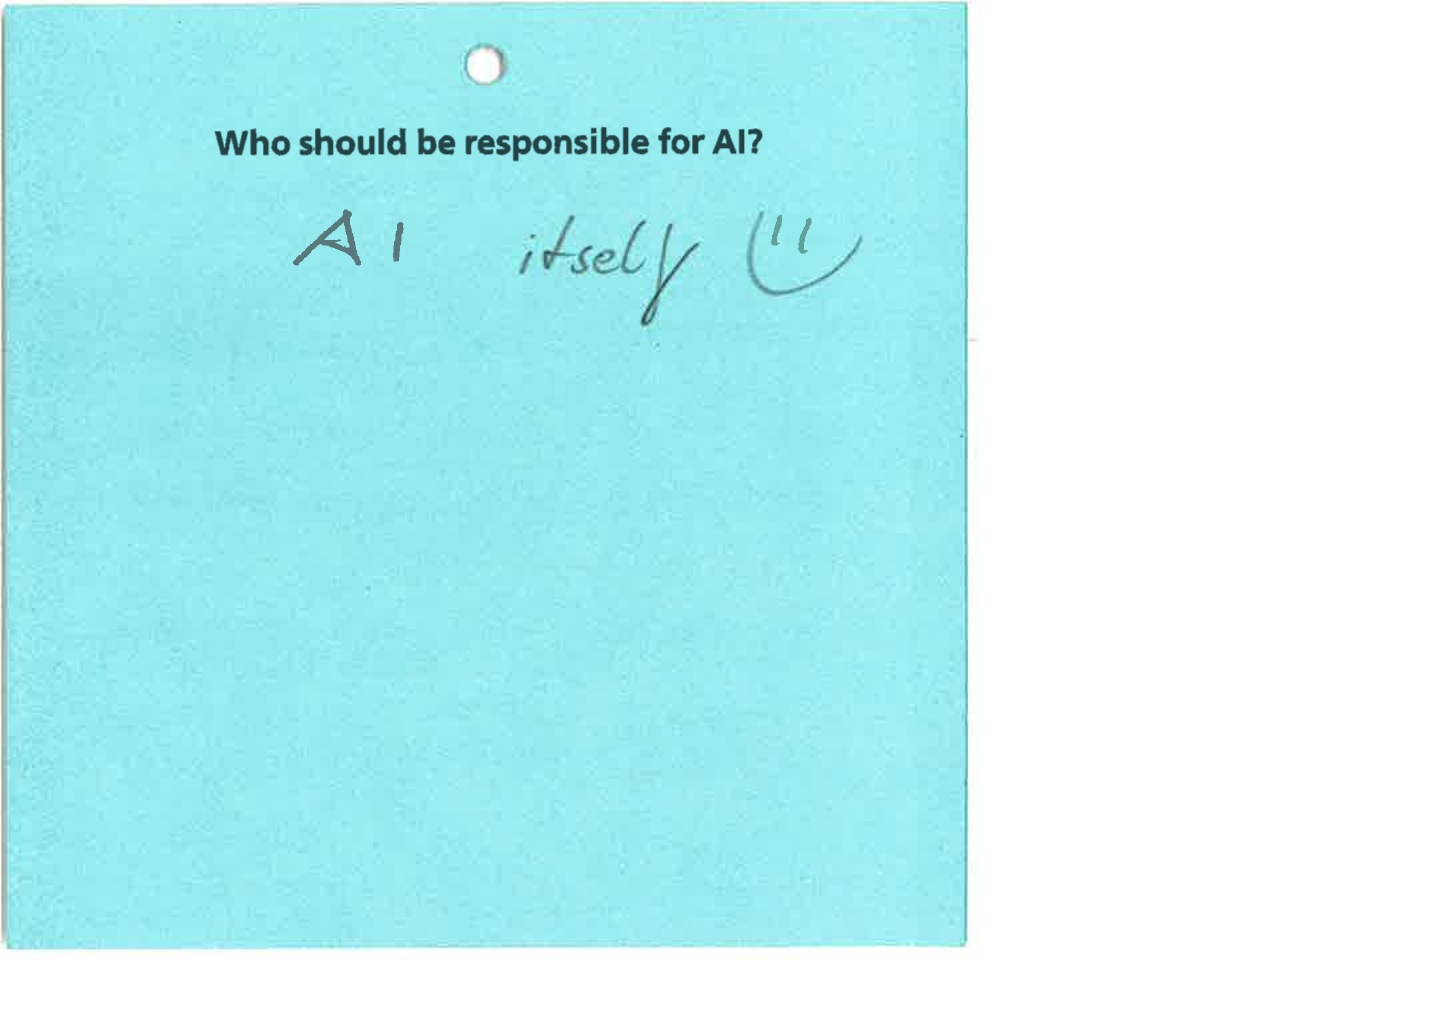 Who should be responsible for AI?
AI itself